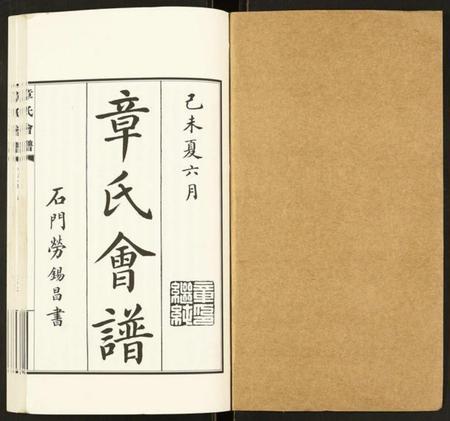 己未夏六月
章氏會譜
石門勞錫昌書
章氏會譜